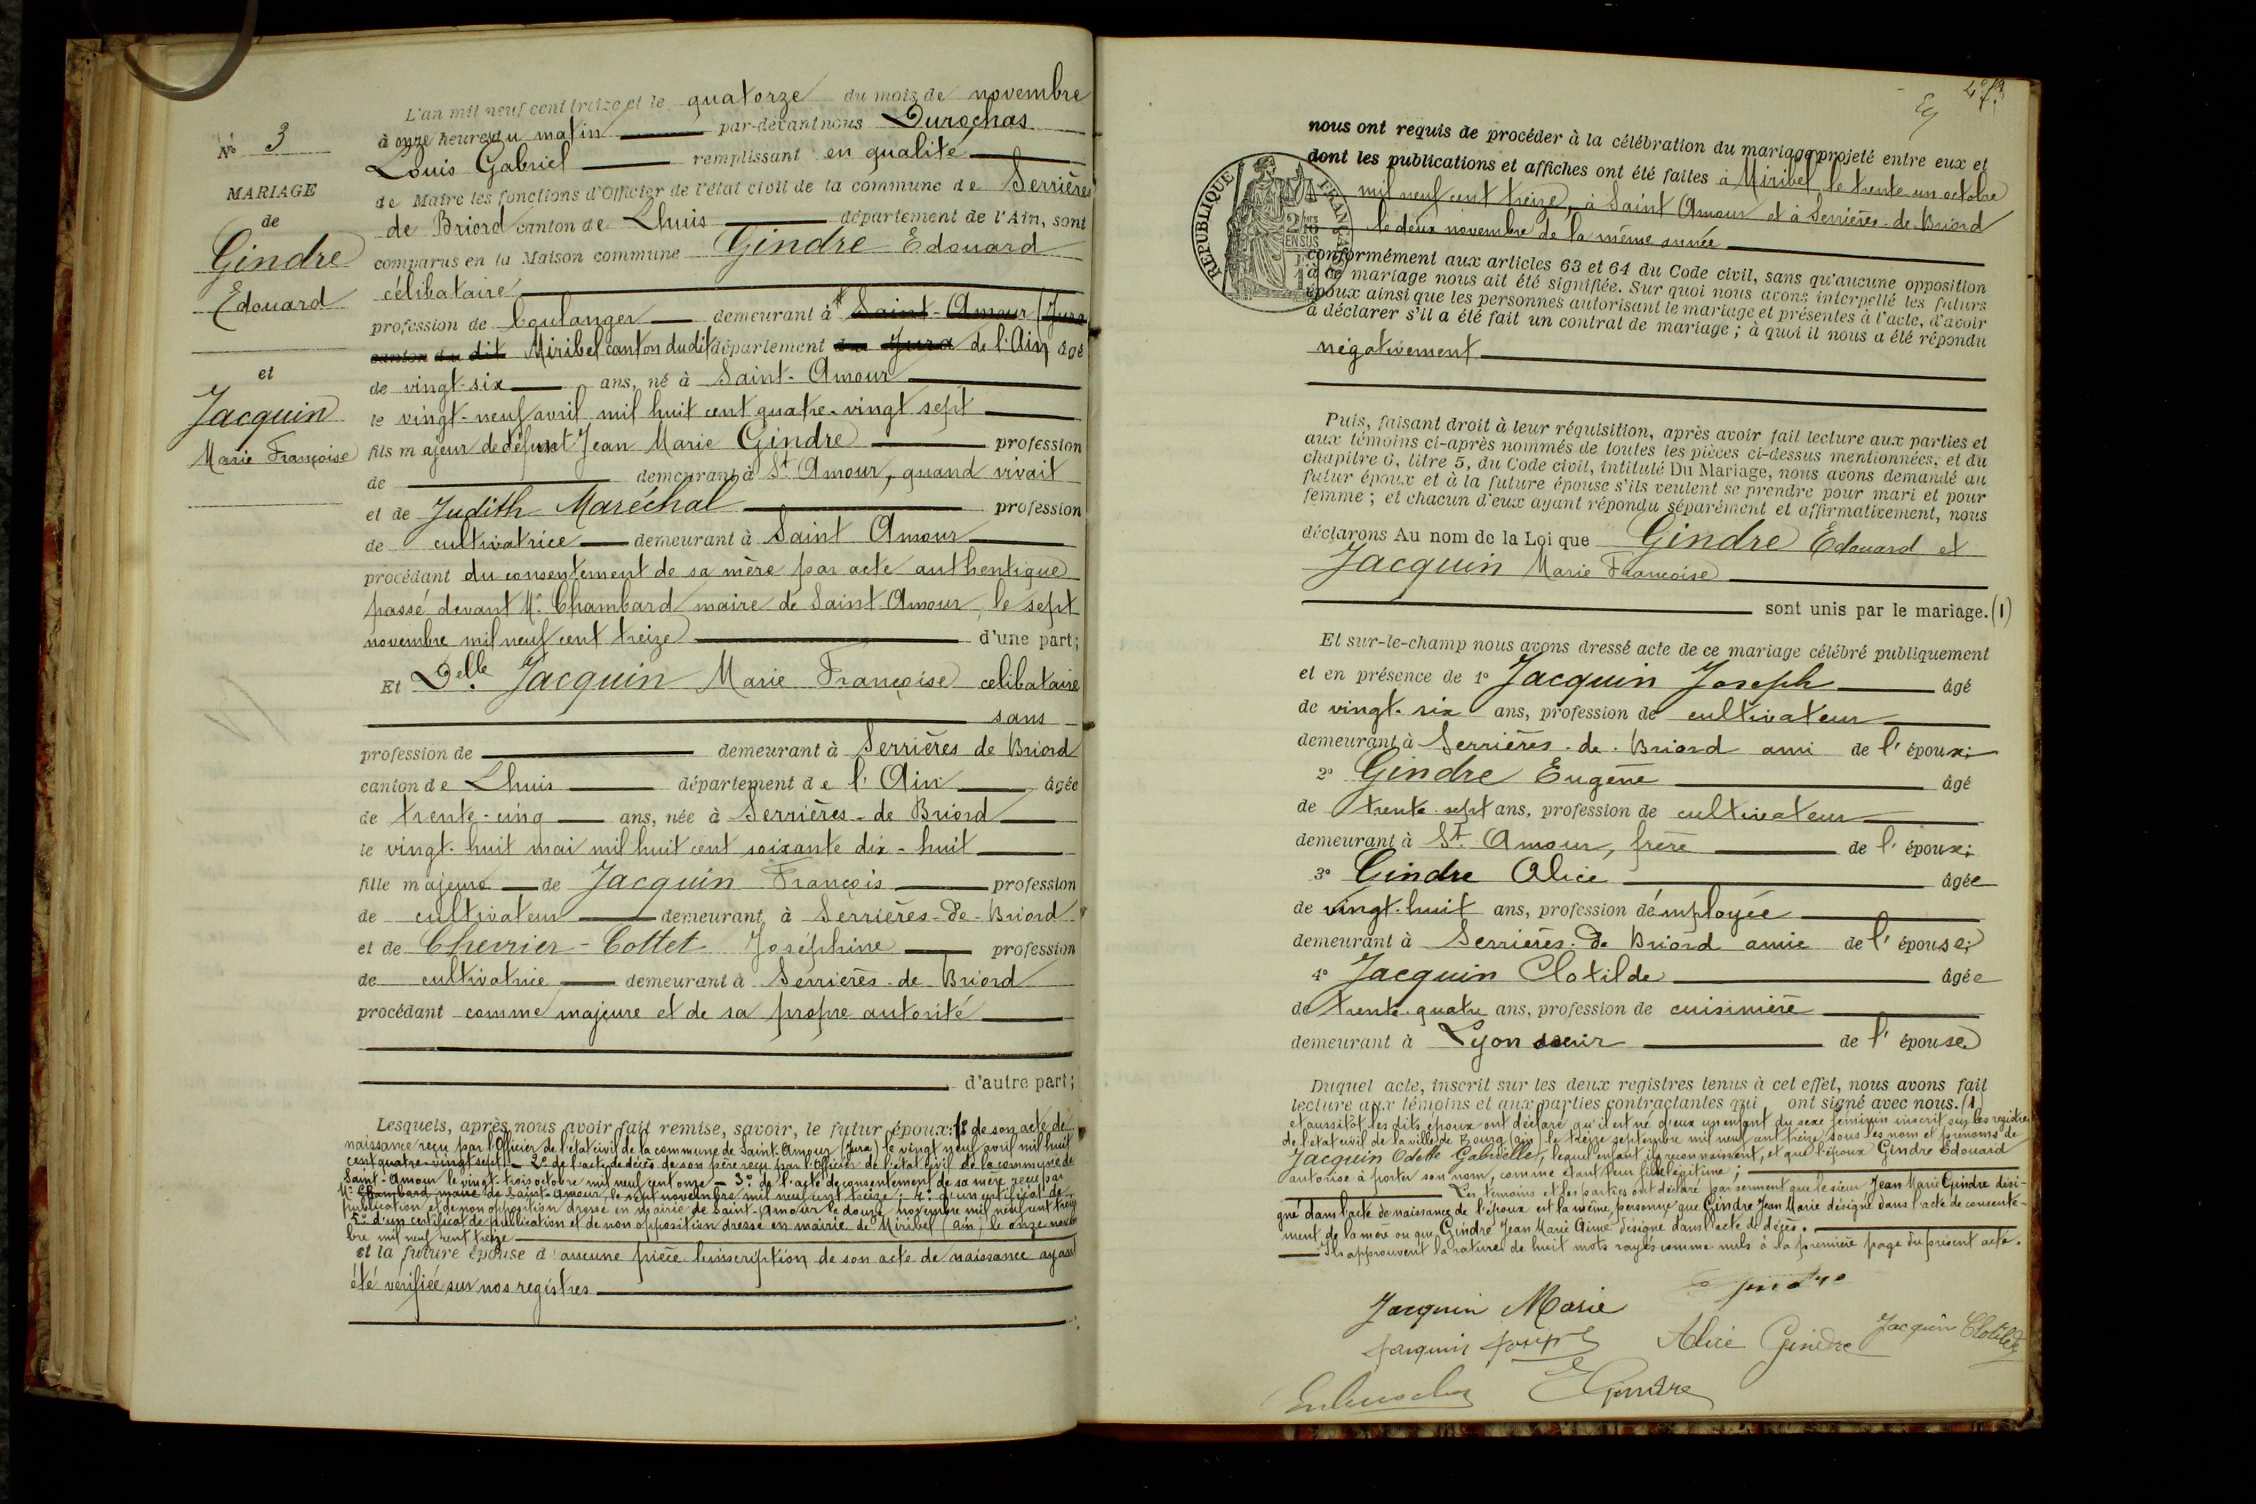 N° 3
MARIAGE
de
Gindre
Edouard
et
Jacquin
Marie Françoise
L'an mil neuf cent treize et le quatorze du mois de novembre
à onze heures du matin par-devant nous Durochas
Louis Gabriel remplissant en qualité
de Maire les fonctions d'Officier de l'état civil de la commune de Serrières
de Briord canton de Lhuis département de l'Ain, sont
comparus en la Maison commune Gindre Edouard
célibataire
profession de boulanger demeurant à Saint-Amour (Jura
canton du dit Miribel canton dudit département du Jura de l'Ain âgé
de vingt-six ans, né à Saint-Amour
le vingt-neuf avril mil huit cent quatre-vingt sept
fils majeur de défunt Jean Marie Gindre profession
de demeurant à St Amour, quand vivait
et de Judith Maréchal profession
de cultivatrice demeurant à Saint Amour
procédant du consentement de sa mère par acte authentique
passé devant Mr Chambard maire de Saint-Amour, le sept
novembre mil neuf cent treize d'une part;
Et Delle Jacquin Marie Françoise celibataire
sans
profession de demeurant à Serrières de Briord
canton de Lhuis département de l'Ain âgée
de trente-cinq ans, née à Serrières-de Briord
le vingt-huit mai mil huit cent soixante dix-huit
fille majeure de Jacquin François profession
de cultivateur demeurant à Serrières-de-Briord
et de Chevrier-Cottet Joséphine profession
de cultivatrice demeurant à Serrières-de Briord
procédant comme majeure et de sa propre autorité
d'autre part;
Lesquels, après nous avoir fait remise, savoir, le futur époux: 1° de son acte de
naissance reçu par l'Officier de l'état civil de la commune de Saint-Amour (Jura) le vingt neuf avril mil huit
cent quatre-vingt sept. - 2° de l'acte de décès de son père reçu par l'Officier de l'état civil de la commune de
Saint-Amour le vingt-trois octobre mil neuf cent onze - 3° de l'acte de consentement de sa mère reçu par
Mr Chambard maire de Saint-Amour, le sept novembre mil neuf cent treize; 4° d'un certificat de
publication et de non opposition dressé en mairie de Saint-Amour le douze novembre mil neuf cent treize
5° d'un certificat de publication et de non opposition dressé en mairie de Miribel (Ain) le onze novem
bre mil neuf cent treize
et la future épouse d'aucune pièce l'inscription de son acte de naissance ayant
été vérifiée sur nos registres
nous ont requis de procéder à la célébration du mariage projeté entre eux et
dont les publications et affiches ont été faites à Miribel, le trente un octobre
mil neuf cent treize, à Saint Amour et à Serrières-de-Briord
le deux novembre de la même année
RÉPUBLIQUE FRANÇAISE
2/10 EN SUS
conformément aux articles 63 et 64 du Code civil, sans qu'aucune opposition
à ce mariage nous ait été signifiée. Sur quoi nous avons interpellé les futurs
époux ainsi que les personnes autorisant le mariage et présentes à l'acte, d'avoir
à déclarer s'il a été fait un contrat de mariage; à quoi il nous a été répondu
négativement
Puis, faisant droit à leur réquisition, après avoir fait lecture aux parties et
aux témoins ci-après nommés de toutes les pièces ci-dessus mentionnées, et du
chapitre 6, titre 5, du Code civil, intitulé Du Mariage, nous avons demandé au
futur époux et à la future épouse s'ils veulent se prendre pour mari et pour
femme; et chacun d'eux ayant répondu séparément et affirmativement, nous
déclarons Au nom de la Loi que Gindre Edouard et
Jacquin Marie Françoise
sont unis par le mariage. (1)
Et sur-le-champ nous avons dressé acte de ce mariage célébré publiquement
et en présence de 1° Jacquin Joseph âgé
de vingt-six ans, profession de cultivateur
demeurant à Serrières-de-Briord ami de l'époux;
2° Gindre Eugène âgé
de trente-sept ans, profession de cultivateur
demeurant à St. Amour, frère de l'époux;
3° Gindre Alice âgée
de vingt-huit ans, profession d'employée
demeurant à Serrières-de Briord amie de l'épouse;
4° Jacquin Clotilde âgée
de trente-quatre ans, profession de cuisinière
demeurant à Lyon sœur de l'épouse
Duquel acte, inscrit sur les deux registres tenus à cet effet, nous avons fait
lecture aux témoins et aux parties contractantes qui ont signé avec nous. (1)
et aussitôt les dits époux ont déclaré qu'il est né d'eux un enfant du sexe féminin inscrit sur les registres
de l'état civil de la ville de Bourg (Ain) le treize septembre mil neuf cent treize sous les nom et prénoms de
Jacquin Odette Gabrielle, lequel enfant ils reconnaissent, et que l'époux Gindre Edouard
autorise à porter son nom, comme étant leur fille légitime;
Les témoins et les parties ont déclaré par serment que le sieur Jean Marie Gindre dési-
gné dans l'acte de naissance de l'époux est la même personne que Gindre Jean Marie désigné dans l'acte de consente-
ment de la mère ou que Gindre Jean Marie Aimé désigné dans l'acte de décès.
Ils approuvent la rature de huit mots rayés comme nuls à la première page du présent acte.
Jacquin Marie
Jacquin Joseph Alice Gindre Jacquin Clotilde
E Gindre